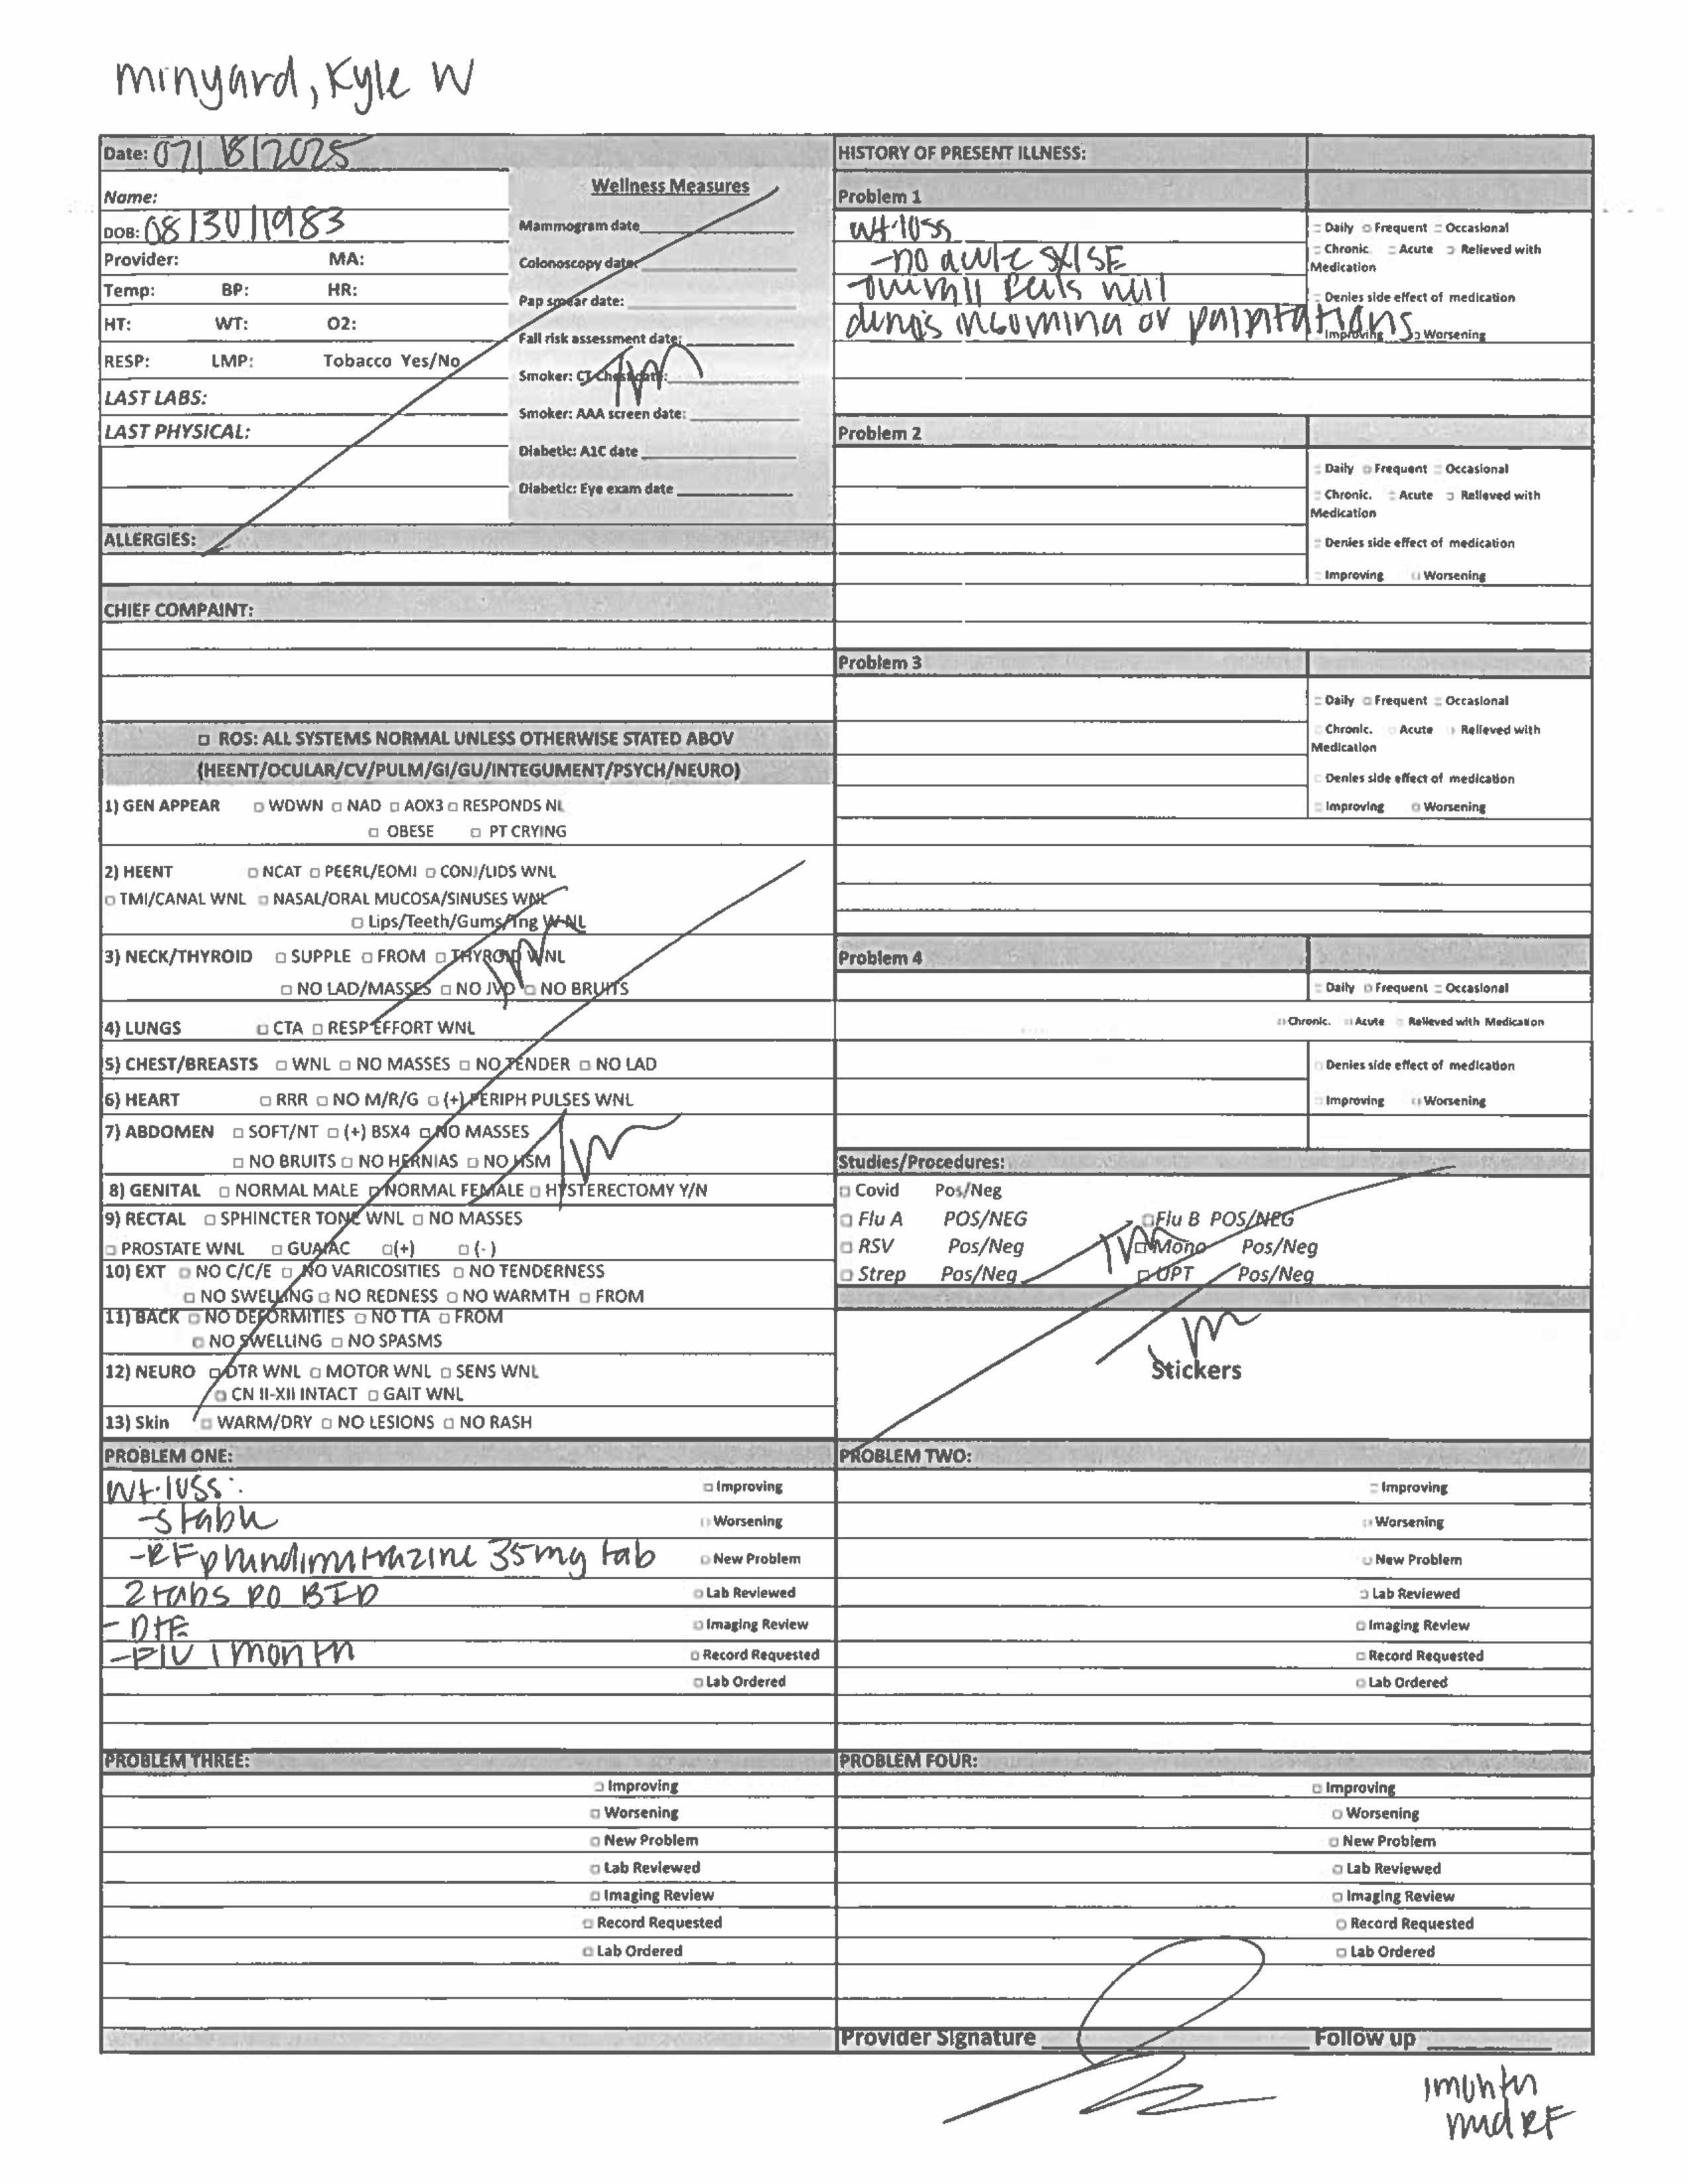 minyard, Kyle W
Date: 07/18/2025
Name:
DOB: 08/30/1983
Provider: MA:
Temp: BP: HR:
HT: WT: O2:
RESP: LMP: Tobacco Yes/No
LAST LABS:
LAST PHYSICAL:
ALLERGIES:
Wellness Measures
Mammogram date
Colonoscopy date:
Pap smear date:
Fall risk assessment date:
Smoker: CT Chest date:
Smoker: AAA screen date:
Diabetic: A1C date
Diabetic: Eye exam date
CHIEF COMPAINT:
ROS: ALL SYSTEMS NORMAL UNLESS OTHERWISE STATED ABOV
(HEENT/OCULAR/CV/PULM/GI/GU/INTEGUMENT/PSYCH/NEURO)
1) GEN APPEAR WDWN NAD AOX3 RESPONDS NL
OBESE PT CRYING
2) HEENT NCAT PEERL/EOMI CONJ/LIDS WNL
TMI/CANAL WNL NASAL/ORAL MUCOSA/SINUSES WNL
Lips/Teeth/Gums/Tng WNL
3) NECK/THYROID SUPPLE FROM THYROID WNL
NO LAD/MASSES NO JVD NO BRUITS
4) LUNGS CTA RESP EFFORT WNL
5) CHEST/BREASTS WNL NO MASSES NO TENDER NO LAD
6) HEART RRR NO M/R/G (+) PERIPH PULSES WNL
7) ABDOMEN SOFT/NT (+) BSX4 NO MASSES
NO BRUITS NO HERNIAS NO HSM
8) GENITAL NORMAL MALE NORMAL FEMALE HYSTERECTOMY Y/N
9) RECTAL SPHINCTER TONE WNL NO MASSES
PROSTATE WNL GUAIAC (+) (-)
10) EXT NO C/C/E NO VARICOSITIES NO TENDERNESS
NO SWELLING NO REDNESS NO WARMTH FROM
11) BACK NO DEFORMITIES NO TTA FROM
NO SWELLING NO SPASMS
12) NEURO DTR WNL MOTOR WNL SENS WNL
CN II-XII INTACT GAIT WNL
13) Skin WARM/DRY NO LESIONS NO RASH
HISTORY OF PRESENT ILLNESS:
Problem 1
wt-loss
-no acute
-overall feels well
denies or
Daily Frequent Occasional
Chronic. Acute Relieved with
Medication
Denies side effect of medication
Improving Worsening
Problem 2
Daily Frequent Occasional
Chronic. Acute Relieved with
Medication
Denies side effect of medication
Improving Worsening
Problem 3
Daily Frequent Occasional
Chronic. Acute Relieved with
Medication
Denies side effect of medication
Improving Worsening
Problem 4
Daily Frequent Occasional
Chronic. Acute Relieved with Medication
Denies side effect of medication
Improving Worsening
Studies/Procedures:
Covid Pos/Neg
Flu A POS/NEG Flu B POS/NEG
RSV Pos/Neg Mono Pos/Neg
Strep Pos/Neg UPT Pos/Neg
Stickers
PROBLEM ONE:
wt-loss:
-stable
-RF phendimetrazine 35mg tab
2 tabs PO BID
- D+E
-F/U 1 month
Improving
Worsening
New Problem
Lab Reviewed
Imaging Review
Record Requested
Lab Ordered
PROBLEM TWO:
Improving
Worsening
New Problem
Lab Reviewed
Imaging Review
Record Requested
Lab Ordered
PROBLEM THREE:
Improving
Worsening
New Problem
Lab Reviewed
Imaging Review
Record Requested
Lab Ordered
PROBLEM FOUR:
Improving
Worsening
New Problem
Lab Reviewed
Imaging Review
Record Requested
Lab Ordered
Provider Signature Follow up
1 month
med RF